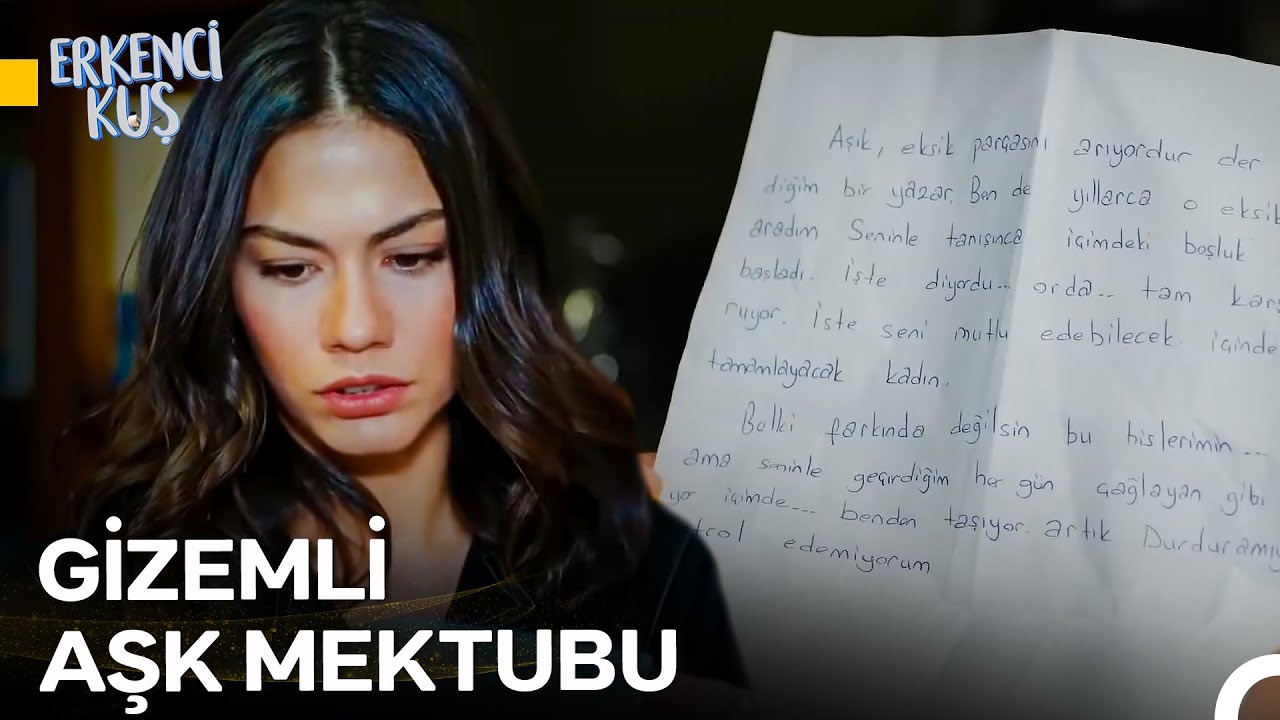 ERKENCİ
KUŞ
Aşık, eksik parçasını arıyordur der
diğim bir yazar. Ben de yıllarca o eksik
aradım Seninle tanışınca içimdeki boşluk
başladı. İşte diyordu... orda... tam karş
ruyor. İşte seni mutlu edebilecek. içinde
tamamlayacak kadın.
Belki farkında değilsin bu hislerimin...
ama seninle geçirdiğim her gün çağlayan gibi
yor içimde... benden taşıyor. artık Durduramıy
trol edemiyorum
GİZEMLİ
AŞK MEKTUBU